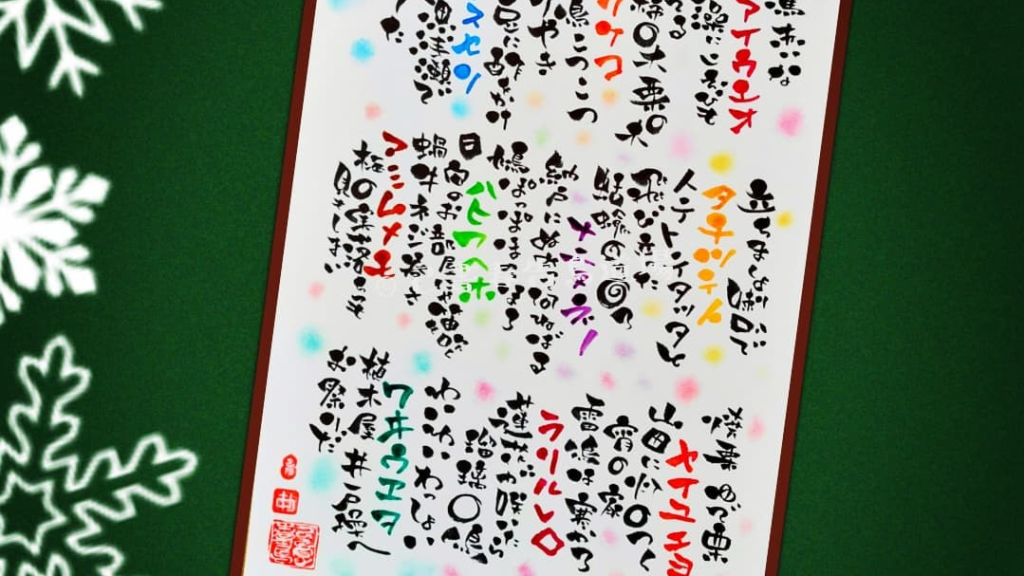 馬赤いな
アイウエオ
藻に小蝦も
の木栗の木
クケコ
鳥こつこつ
けやき
豆に酢をかけ
スセソ
魚浅瀬で
立ちましょ喇叭で
タチツテト
トテトテタッタと
飛び立った
蛞蝓のろのろ
ナニヌネノ
納戸にぬめってなにねばる
鳩ぽっぽほろほろ
ハヒフヘホ
日向のお部屋にゃ笛を吹く
蝸牛ネジ巻き
マミムメモ
梅の実落ちても
見もしまい
焼栗ゆで栗
ヤイユエヨ
山田に灯のつく
宵の家
雷鳥は寒かろ
ラリルレロ
蓮花が咲いたら
瑠璃の鳥
わいわいわっしょい
ワヰウヱヲ
植木屋井戸換へ
お祭りだ